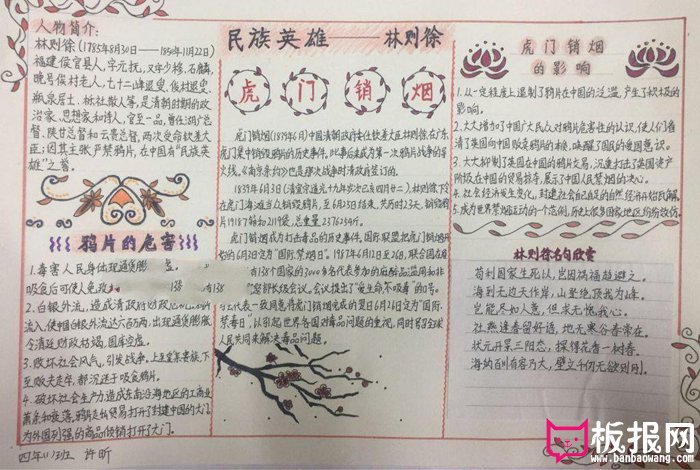 人物简介:
林则徐(1785年8月30日——1850年11月22日)
福建侯官县人,字元抚,又字少穆、石麟,
晚号俟村老人、七十二峰退叟、俟村退叟、
瓶泉居士、栎社散人等,是清朝时期的政
治家、思想家和诗人,官至一品,曾任湖广总
督、陕甘总督和云贵总督,两次受命钦差大
臣;因其主张严禁鸦片,在中国有“民族英
雄”之誉。
鸦片的危害
1.毒害人民身体
2.白银外流,造成清政府财政危机
流入,使中国白银外流六百万两,出现通货膨胀
令清廷财政枯竭,国库空虚。
3.败坏社会风气,引失战争,上至皇室贵族,下
至贩夫走卒,都沉迷于吸食鸦片。
4.破坏社会生产力造成东南沿海地区的工商业
萧条和衰落,鸦片走私贸易打开了封建中国的大门,
为外国列强的商品倾销打开了大门。
四年(1)班 许昕
民族英雄——林则徐
虎门销烟
虎门销烟(1839年6月)中国清朝政府委任钦差大臣林则徐在广东
虎门集中销毁鸦片的历史事件,此事后来成为第一次鸦片战争的导
火线,《南京条约》也是那次战争时清政府签订的。
1839年6月3日(清宣宗道光十九年岁次己亥四月廿二)林则徐下令
在虎门海滩当众销毁鸦片,至6月25日结束,共历时23天,销毁鸦
片19187箱和2119袋,总重量2376254斤。
虎门销烟成为打击毒品的历史事件,国际联盟把虎门销烟开始
的6月3日定为“国际禁烟日”。1987年6月12日至26日,联合国在维
138个国家的2000多名代表参加的麻醉品滥用和非
部长级会议。会议提出了“爱生命不吸毒”的口号。
与会代表一致同意将虎门销烟完成的翌日6月26日定为“国际
禁毒日”,以引起世界各国对毒品问题的重视,同时号召全球
人民共同来解决毒品问题。
虎门销烟
的影响
1.从一定程度上遏制了鸦片在中国的泛滥,产生了积极的
影响。
2.大大增加了中国广大民众对鸦片危害性的认识,使人们看
清了英国向中国贩卖鸦片的本质,唤醒了国民的爱国意识。
3.大大抑制了英国在中国的鸦片交易,沉重打击了英国资产
阶级在中国的贸易掠夺,展示了中国人民禁烟的决心。
4.社会经济发生变化,封建社会自己自足的自然经济开始瓦解。
5.成为世界禁烟运动的一个范例,历史上很多国家地区纷纷效仿。
林则徐名句欣赏
苟利国家生死以,岂因祸福趋避之。
海到无边天作岸,山登绝顶我为峰。
岂能尽如人意,但求无愧我心。
社燕逢春留好语,地无寒谷春常在。
状元开第三阳态,探得花香一树春。
海纳百川有容乃大,壁立千仞无欲则刚。
板报网
www.banbaowang.com